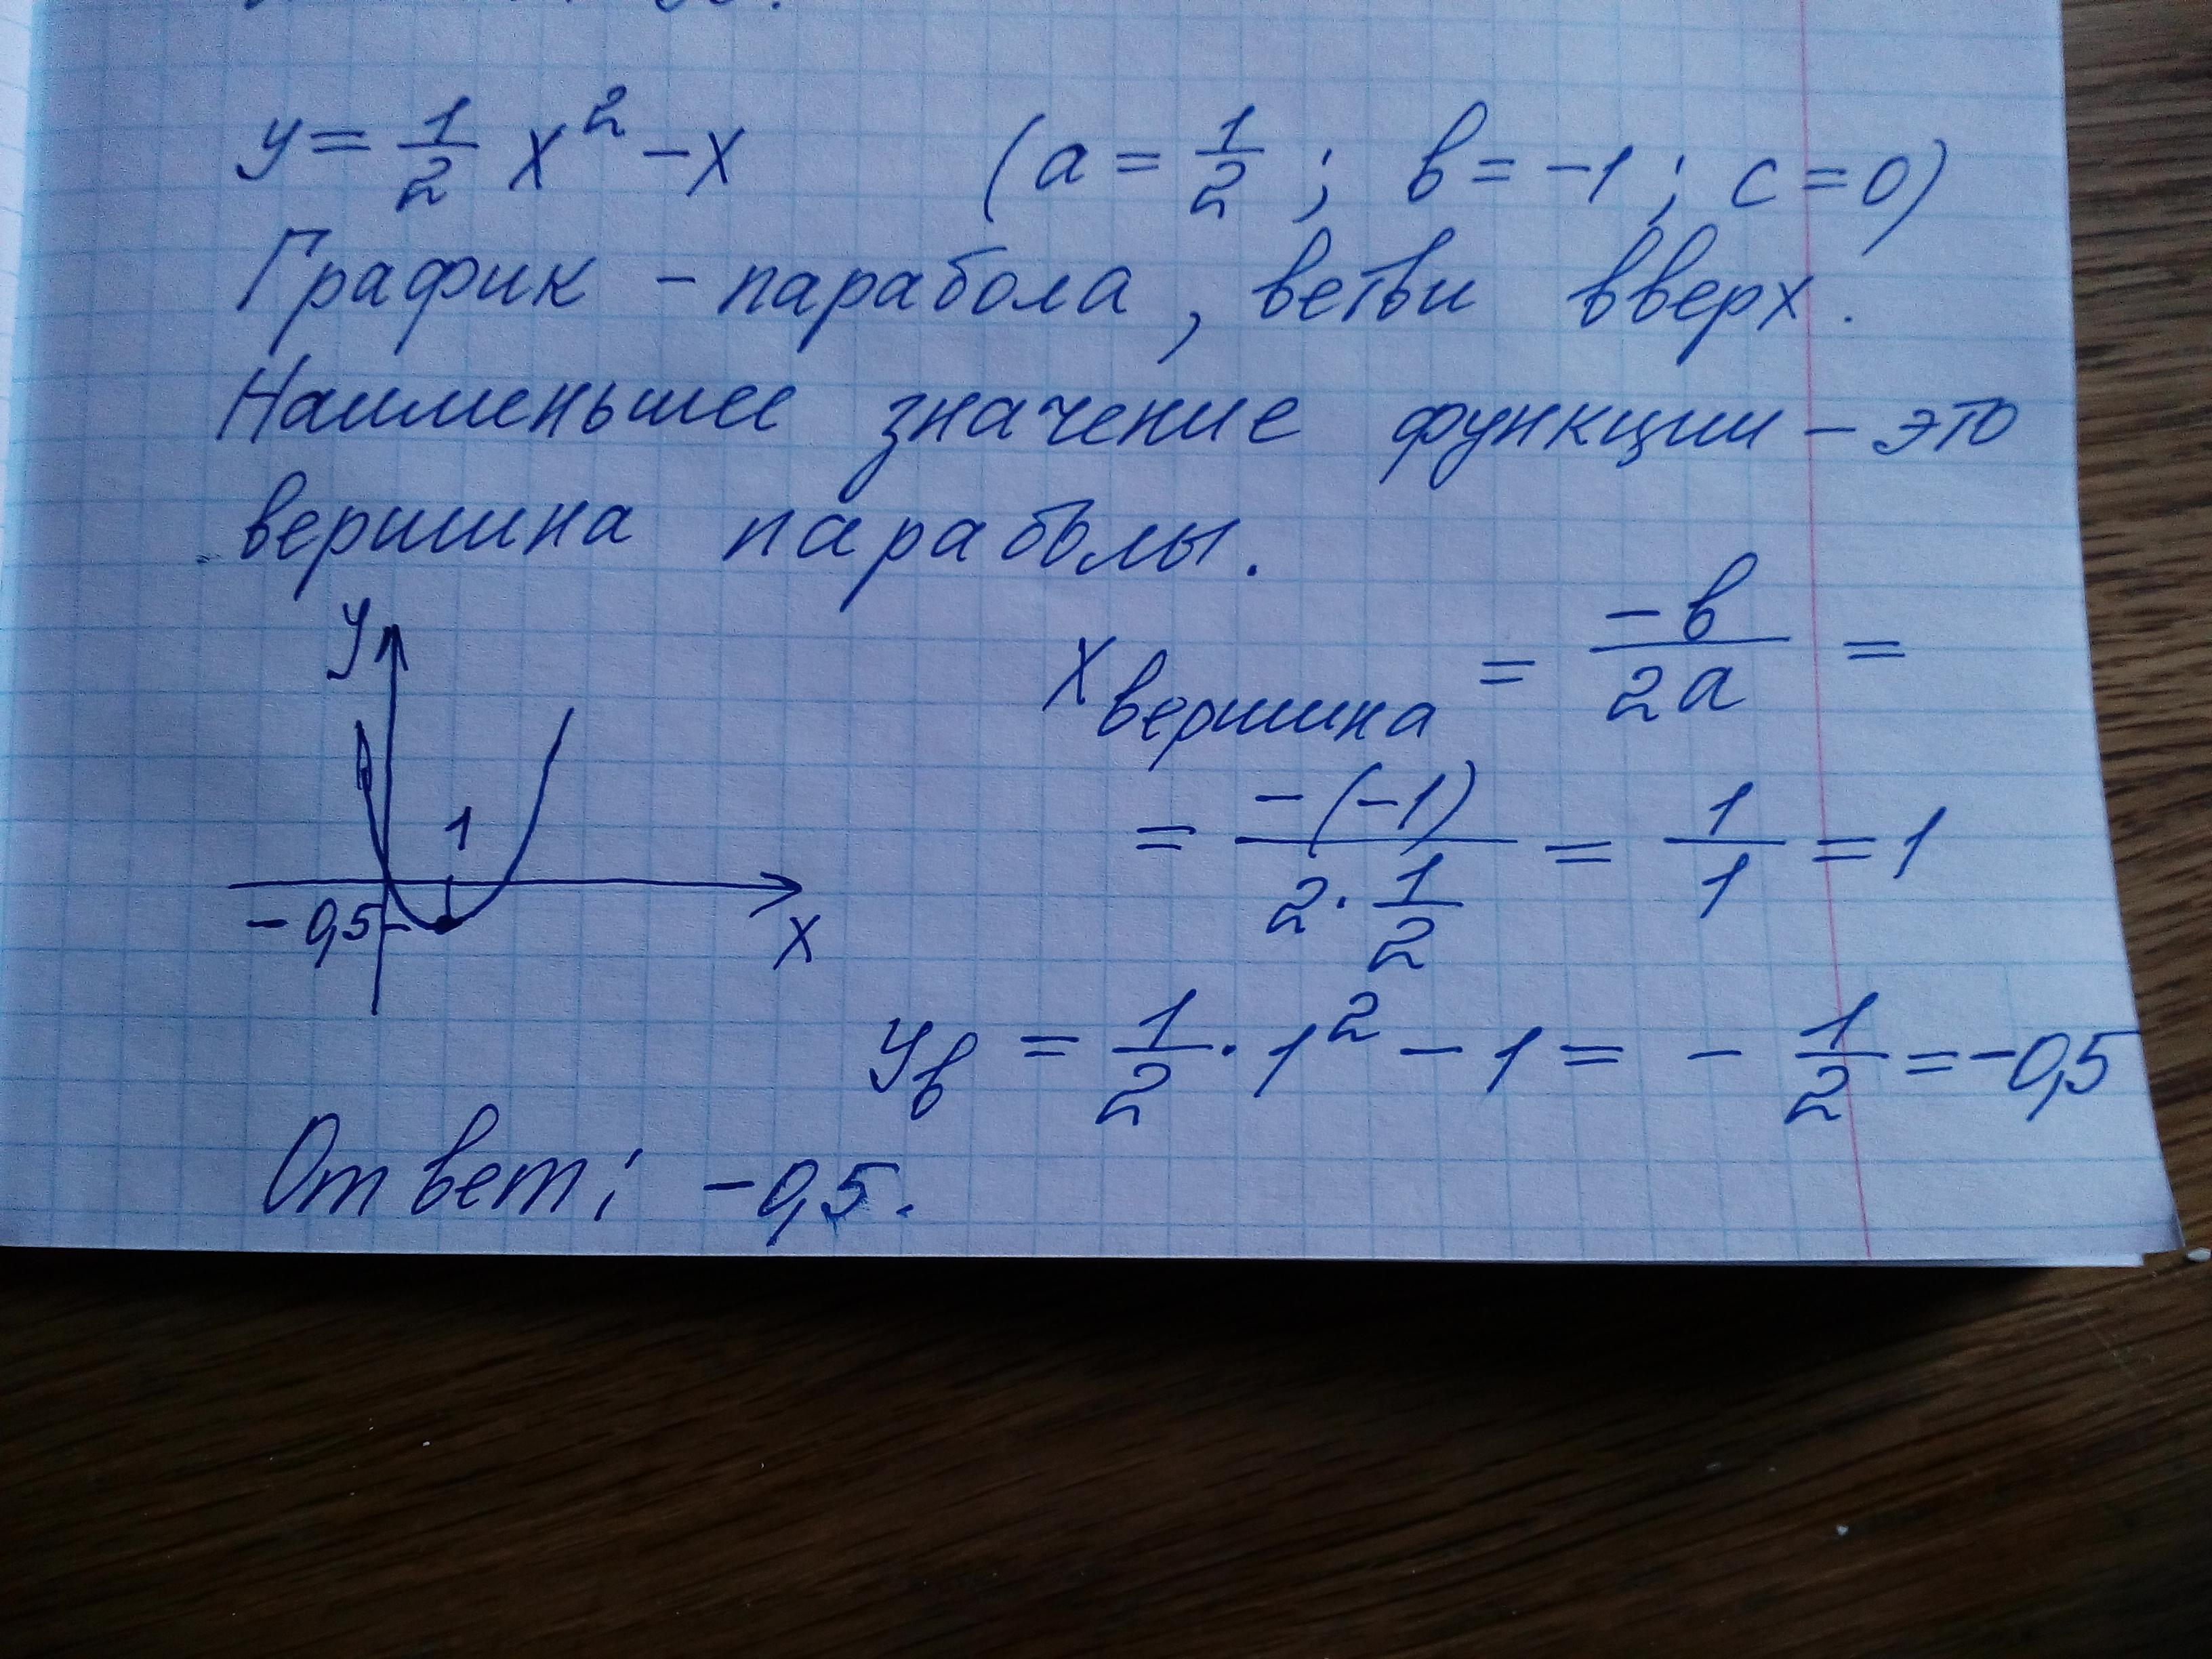 y = 1/2 x² - x (a = 1/2 ; в = -1 ; c = 0)
График - парабола, ветви вверх.
Наименьшее значение функции - это
вершина параболы.
y
1
-0,5
x
x вершина = -в/2a =
= -(-1)/(2·1/2) = 1/1 = 1
yв = 1/2 · 1² - 1 = - 1/2 = -0,5
Ответ: -0,5.